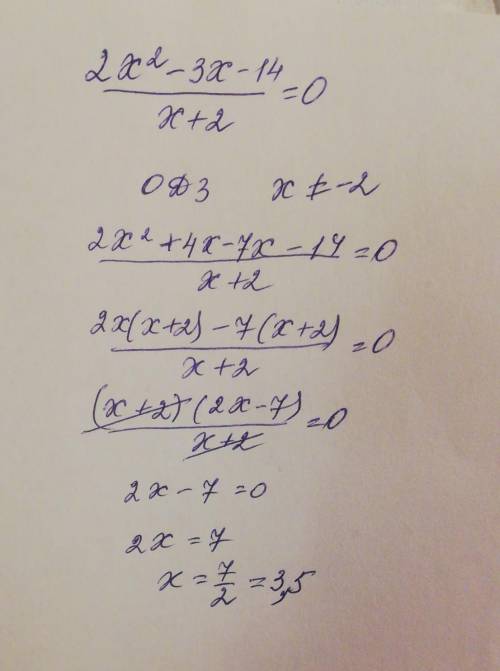 2x² - 3x - 14
/ x+2 = 0
ОДЗ x ≠ -2
2x² + 4x - 7x - 14
/ x+2 = 0
2x(x+2) - 7(x+2)
/ x+2 = 0
(x+2)(2x-7)
/ x+2 = 0
2x - 7 = 0
2x = 7
x = 7/2 = 3,5